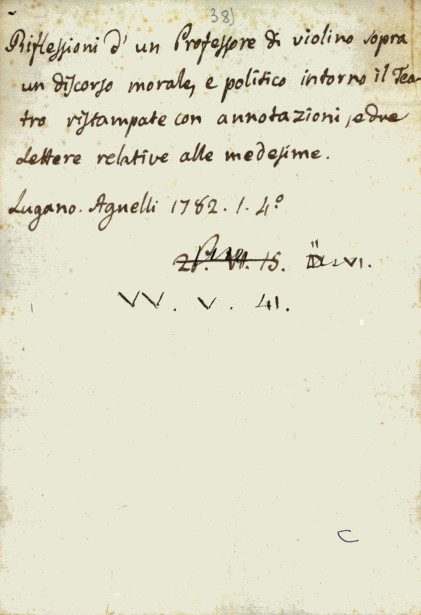 38)
Riflessioni d' un Professore di violino sopra
un discorso morale, e politico intorno il Tea-
tro ristampate con annotazioni, e due
Lettere relative alle medesime.
Lugano. Agnelli 1782. 1. 4.º
15.
VV. V. 41.
C